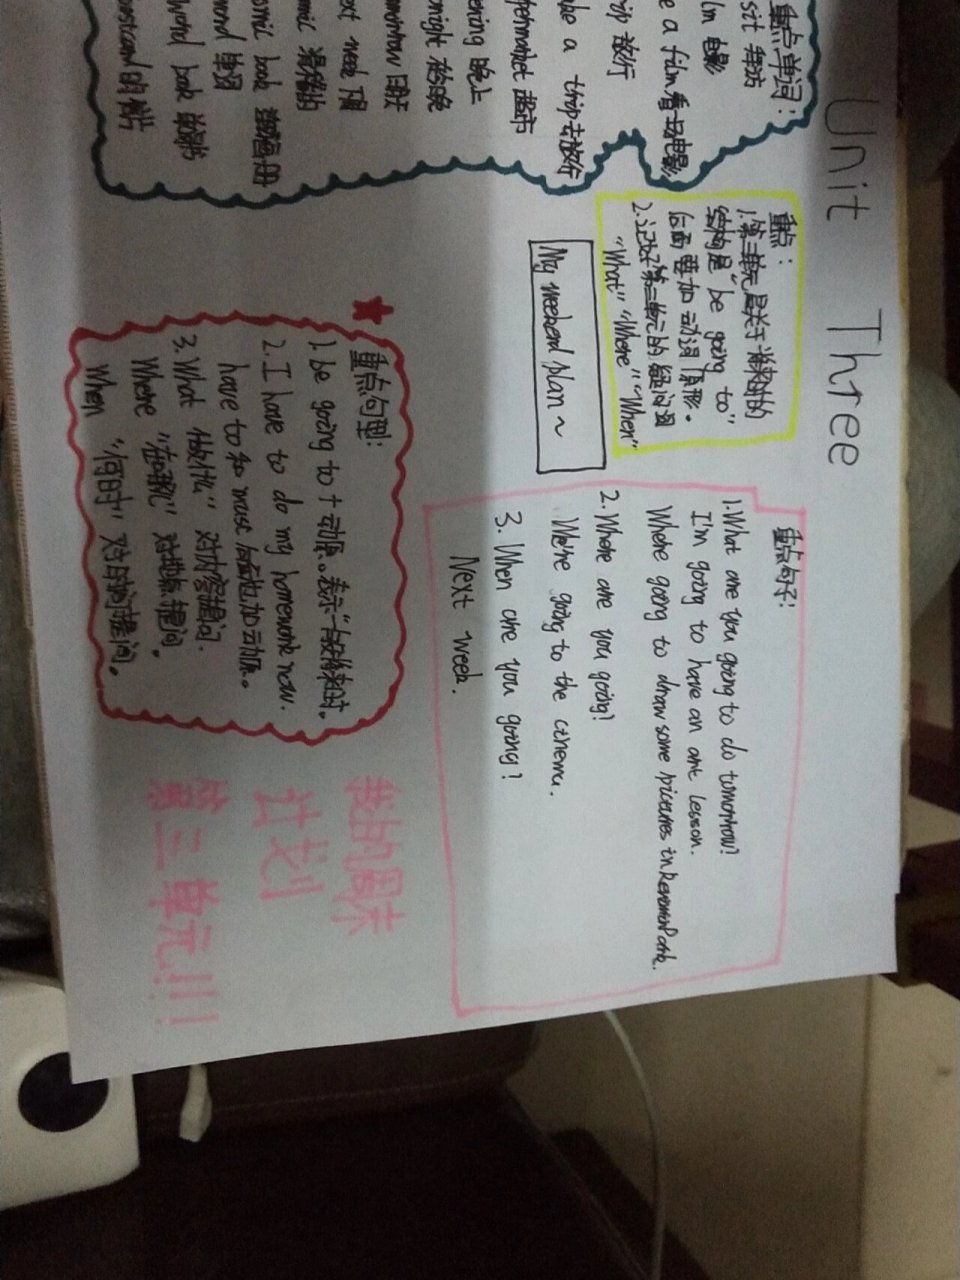 Unit Three
重点单词：
sit 拜访
lm 电影
e a film 看一场电影
rip 旅行
ake a trip 去旅行
permarket 超市
ening 晚上
night 在今晚
morrow 明天
ext week 下周
mic 滑稽的
omic book 漫画册
word 单词
dword book 单词书
ostcard 明信片
重点：
1.第三单元是关于将来时的
结构是"be going to"
后面要加动词原形。
2.记好第三单元的疑问词
"What" "Where" "When"
My weekend plan~
重点句子：
1.What are you going to do tomorrow?
I'm going to have an art lesson.
We're going to draw some pictures in Renmin Park.
2.Where are you going?
We're going to the cinema.
3. When are you going?
Next week.
重点句型：
1.be going to + 动原。表示一段将来时。
2. I have to do my homework now.
have to 和 must 后面也加动原。
3. What "做什么" 对内容提问.
Where "在哪儿" 对地点提问。
When "何时" 对时间提问。
我的周末
计划
第三单元!!!